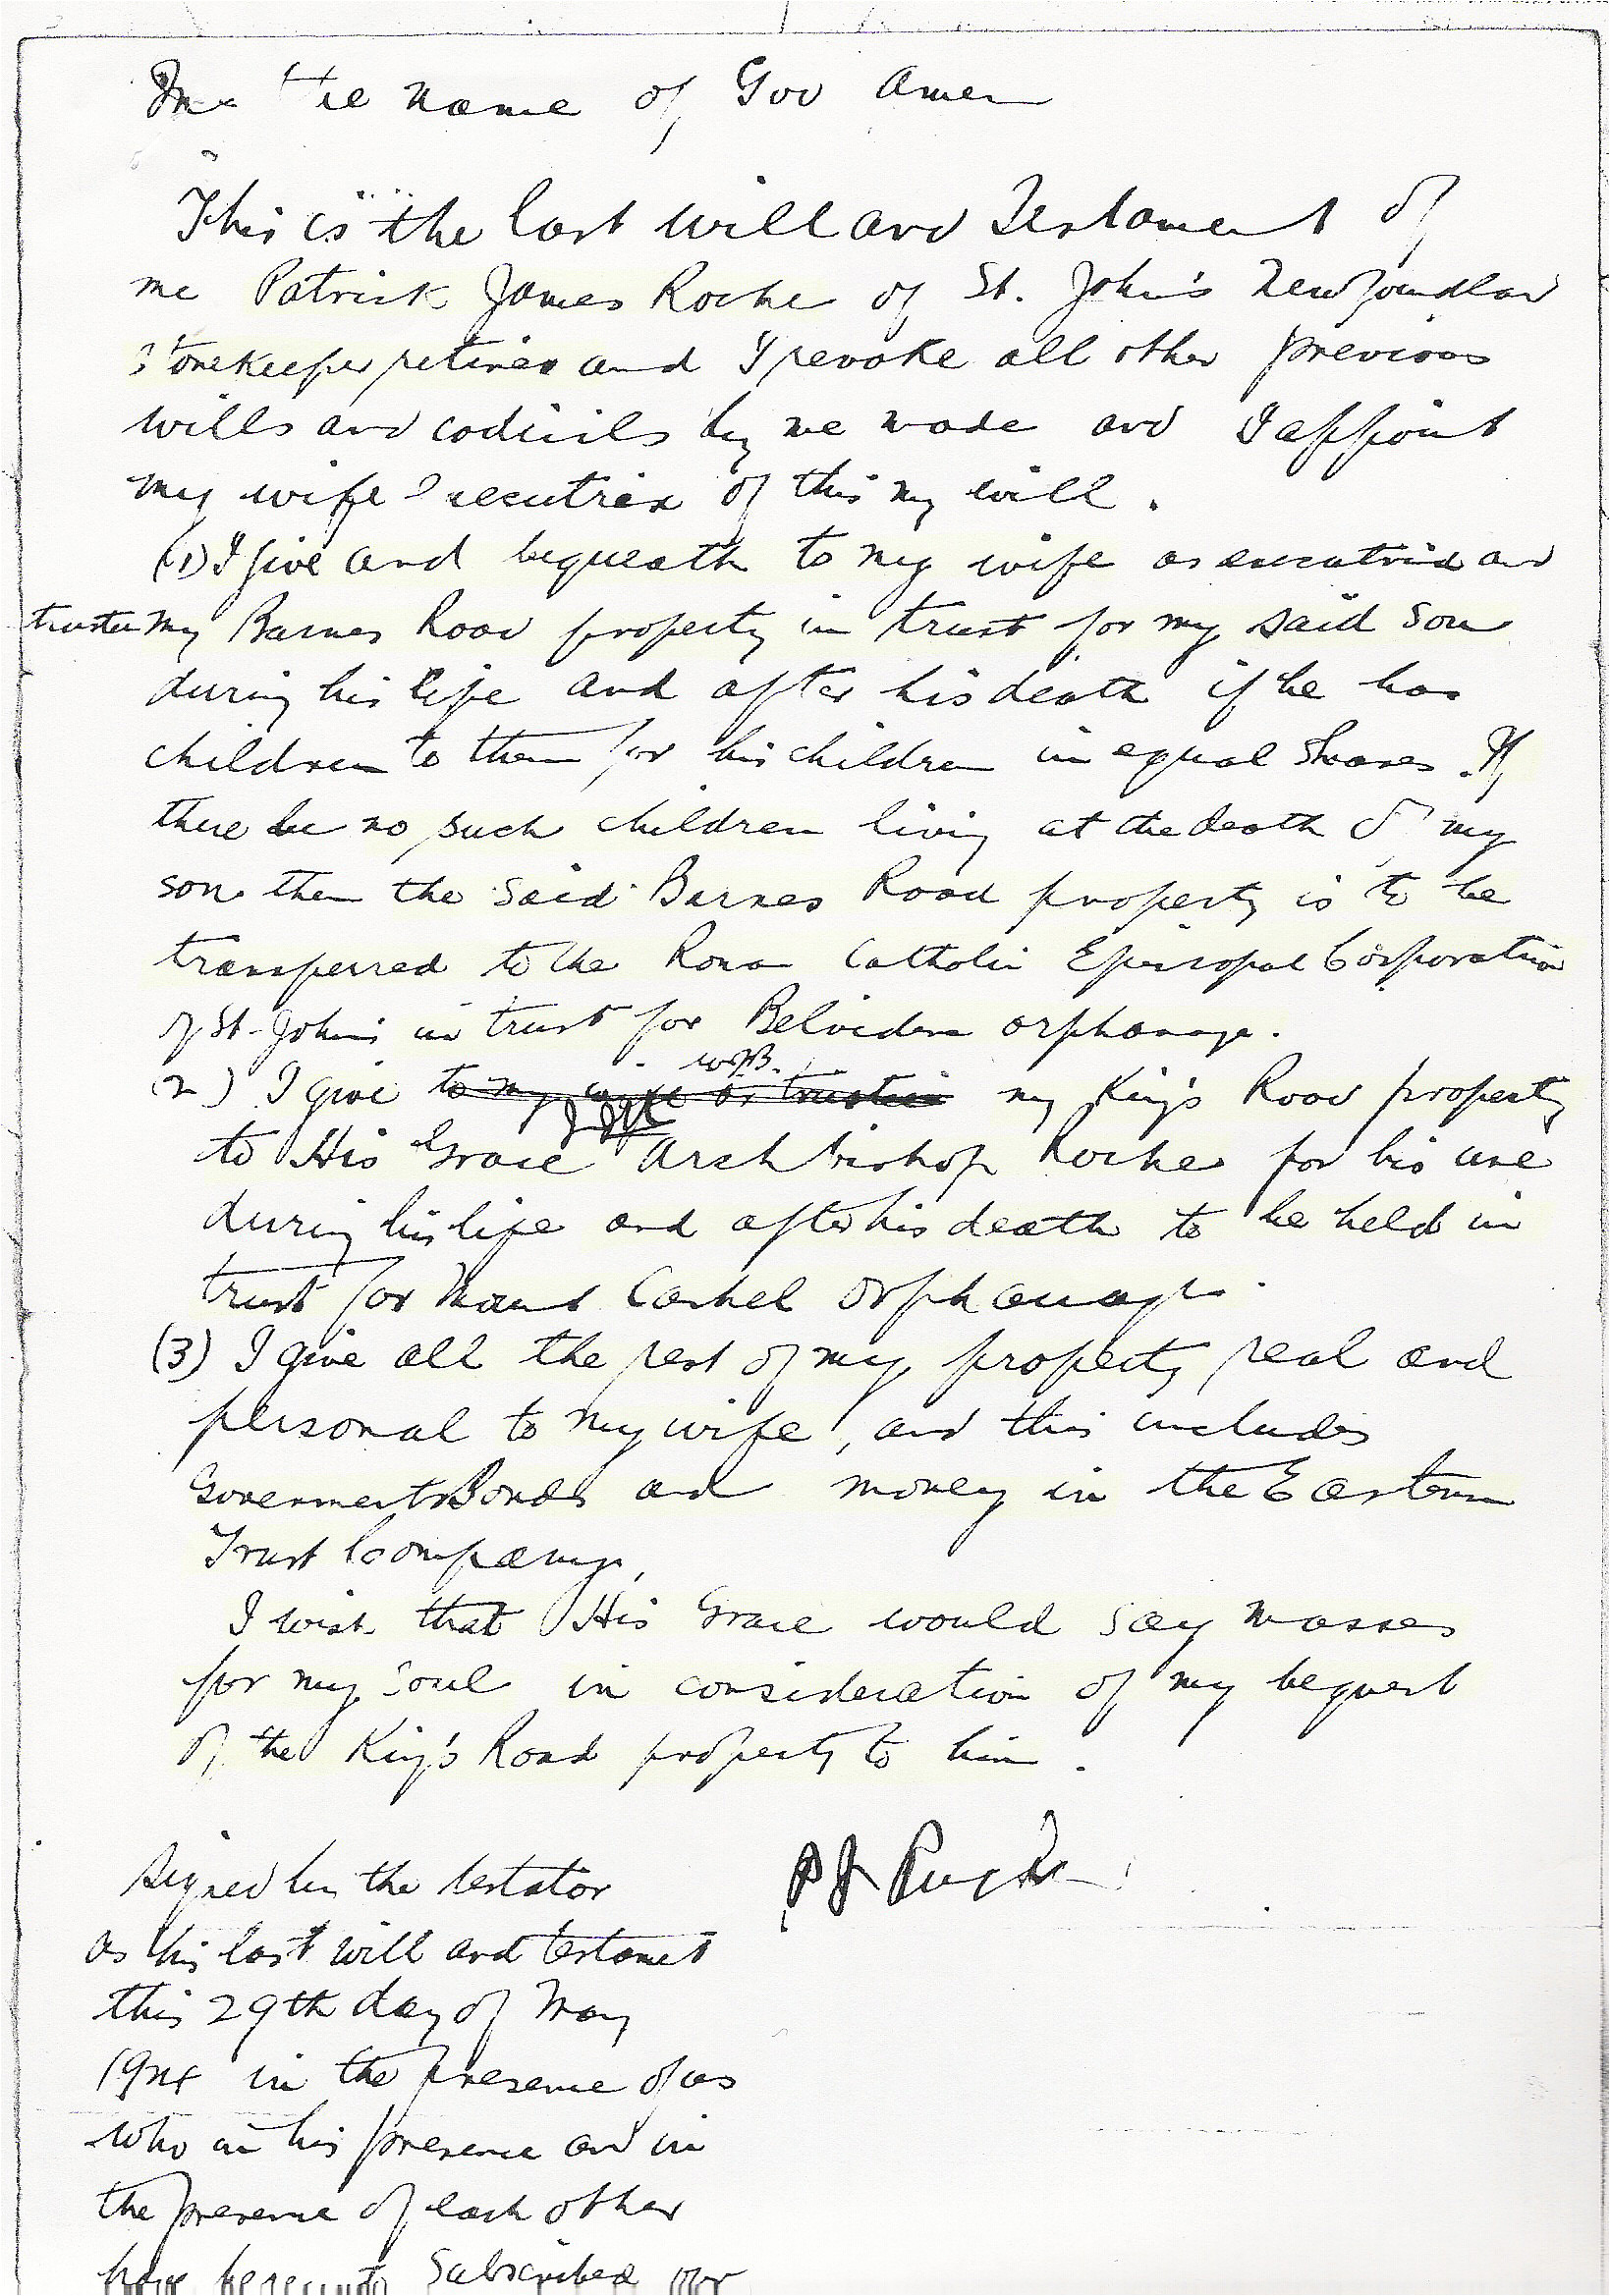 In the name of God Amen
This is the last will and Testament of
me Patrick James Roche of St. John's Newfoundland
Storekeeper retired and I revoke all other previous
wills and codicils by me made and I appoint
my wife Executrix of this my will.
(1) I give and bequeath to my wife as executrix and
trustee my Barnes Road property in trust for my said son
during his life and after his death if he has
children to them for his children in equal shares. If
there be no such children living at the death of my
son then the said Barnes Road property is to be
transferred to the Roman Catholic Episcopal Corporation
of St. John's in trust for Belvidere orphanage.
(2) I give to my wife as trustee my King's Road property
to His Grace Archbishop Roche for his use
during his life and after his death to be held in
trust for Mount Cashel Orphanage.
(3) I give all the rest of my property real and
personal to my wife, and this includes
Government Bonds and money in the Eastern
Trust Company,
I wish that His Grace would say masses
for my soul in consideration of my bequest
of the King's Road property to him.
Signed by the testator
as his last will and testamet
this 29th day of May
in the presence of us
who in his presence and in
the presence of each other
have hereunto Subscribed our